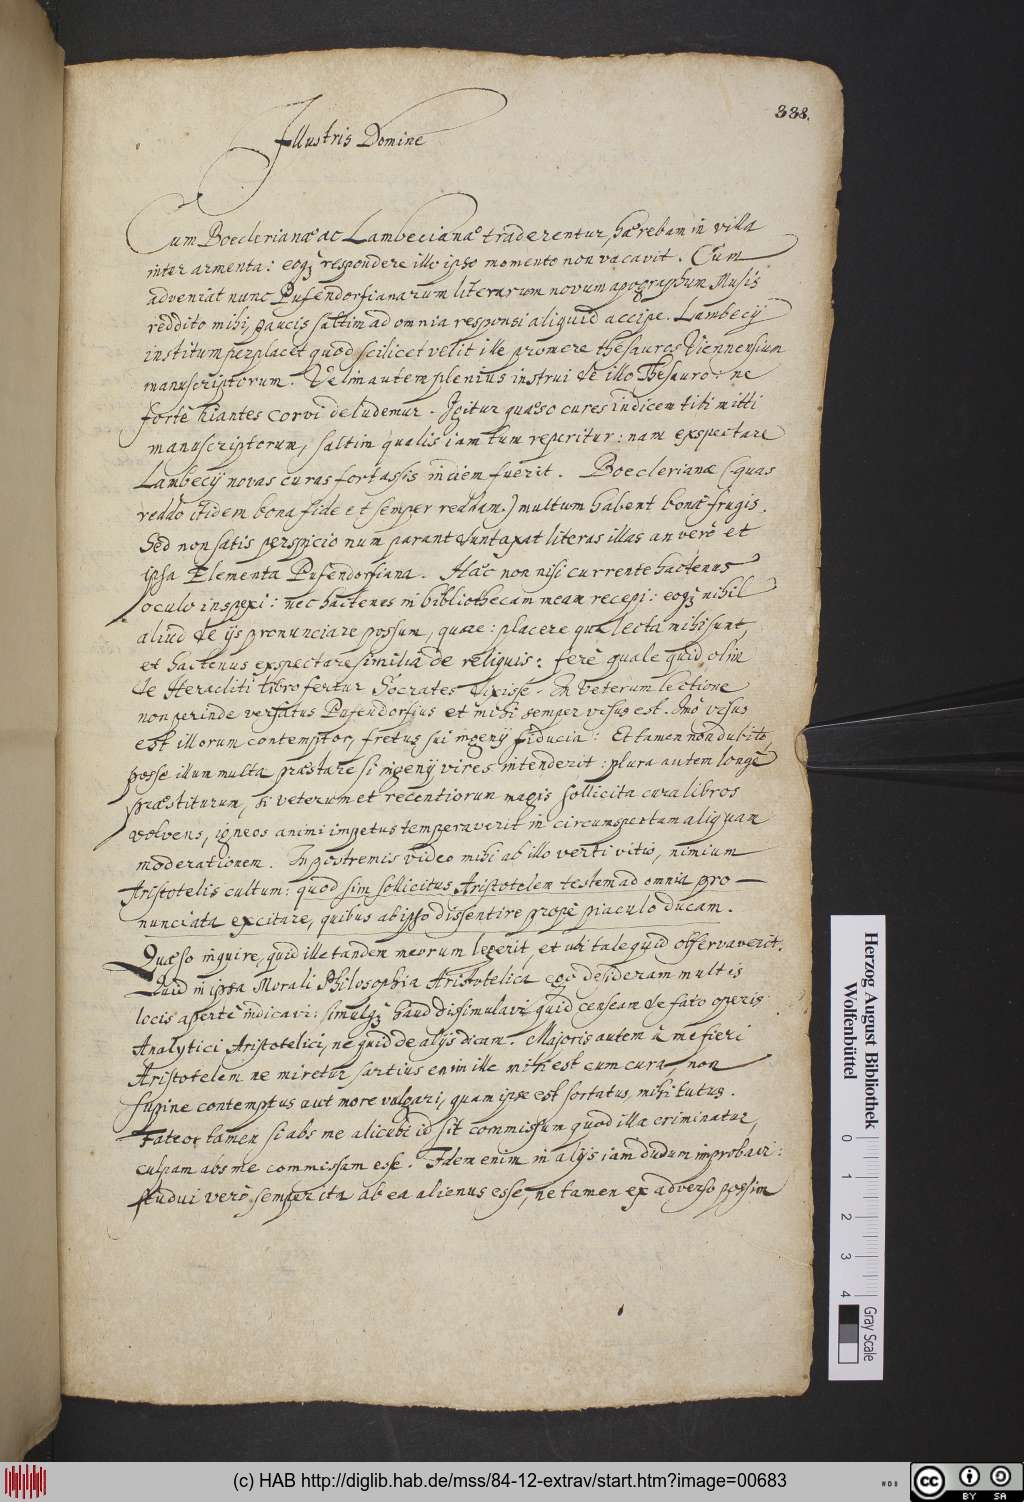 338.
Illustris Domine
Cum Boeclerianæ ac Lambecianæ traderentur, hærebam in villa
inter armenta: eoq; respondere illo ipso momento non vacavit. Cum
adveniat nunc Pufendorfianarum literarum novum apographum Musis
reddito mihi, paucis saltim ad omnia responsi aliquid accipe. Lambecij
institutum perplacet quod scilicet velit ille promere thesauros Viennensium
manuscriptorum. Velim autem plenius instrui de illo Thesauro: ne
fortè hiantes corvi deludemur. Igitur quæso cures indicem tibi mitti
manuscriptorum, saltim qualis iam tum reperitur: nam exspectare
Lambecij novas curas fortassis in diem fuerit. Boeclerianæ (quas
reddo itidem bona fide et semper reddam.) multum habent bonæ frugis.
Sed non satis perspicio num parant duntaxat literas illas an verò et
ipsa Elementa Pufendorfiana. Hæc non nisi currente hactenus
oculo inspexi: nec hactenus in bibliothecam meam recepi: eoq; nihil
aliud de ijs pronunciare possum, quàm: placere quæ lecta mihi sunt,
et hactenus exspectare similia de reliquis: ferè quale quid olim
de Heracliti libro fertur Socrates dixisse. In veterum lectione
non perinde versatus Pufendorfius et mihi semper visus est. Imò visus
est illorum contemptor, fretus sui ingenij fiducia: Et tamen non dubito
posse illum multa præstare si ingenij vires intenderit: plura autem longè
præstiturum, si veterum et recentiorum magis sollicita cura libros
volvens, igneos animi impetus temperaverit in circumspectam aliquam
moderationem. In postremis video mihi ab illo verti vitio, nimium
Aristotelis cultum: quod sim sollicitus Aristotelem testem ad omnia pro-
nunciata excitare, quibus ab ipso dissentire propè piaculo ducam.
Quæso inquire, quid ille tandem meorum legerit, et ubi tale quid observaverit.
Quid in ipsa Morali Philosophia Aristotelica ego desiderem multis
locis apertè indicavi: simulq; haud dissimulavi quid censeam de fato operis
Analytici Aristotelici, ne quid de alijs dicam. Majoris autem à me fieri
Aristotelem ne miretur sartius enim ille mihi est cum cura, non
fugine contemptus aut more vulgari, quam ipse est sortatus mihi tutus.
Fateor tamen si abs me alicubi id sit commissum quod illa criminatur,
culpam abs me commissam esse. Idem enim in alijs iam dudum improbavi:
studui verò semper ita ab ea alienus esse, ne tamen ex adverso possim
Herzog August Bibliothek
Wolfenbüttel
0 1 2 3 4
Gray Scale
(c) HAB http://diglib.hab.de/mss/84-12-extrav/start.htm?image=00683
cc BY SA